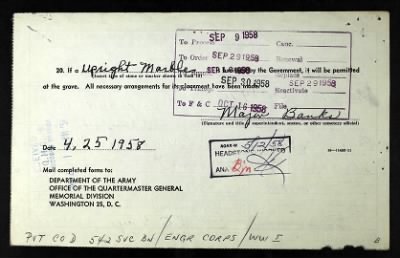 SEP 9 1958
To Process
Canc.
To Order SEP 29 1958
Renewal
20. If a Upright Marble
by the Government, it will be permitted
(Insert type of stone or marker shown in item
SEP 30 1958
Replace
SEP 29 1958
at the grave. All necessary arrangements for its placement have been made.
Reactivate
To F & C OCT 16 1958
File
Major Banks
(Signature and title superintendent, sexton, or other cemetery official)
Date 4, 25 1958
5/2/58
HEADSTONE
ANA
Mail completed forms to:
DEPARTMENT OF THE ARMY
OFFICE OF THE QUARTERMASTER GENERAL
MEMORIAL DIVISION
WASHINGTON 25, D. C.
PVT CO D 542 SVC BN / ENGR CORPS / WW I
B